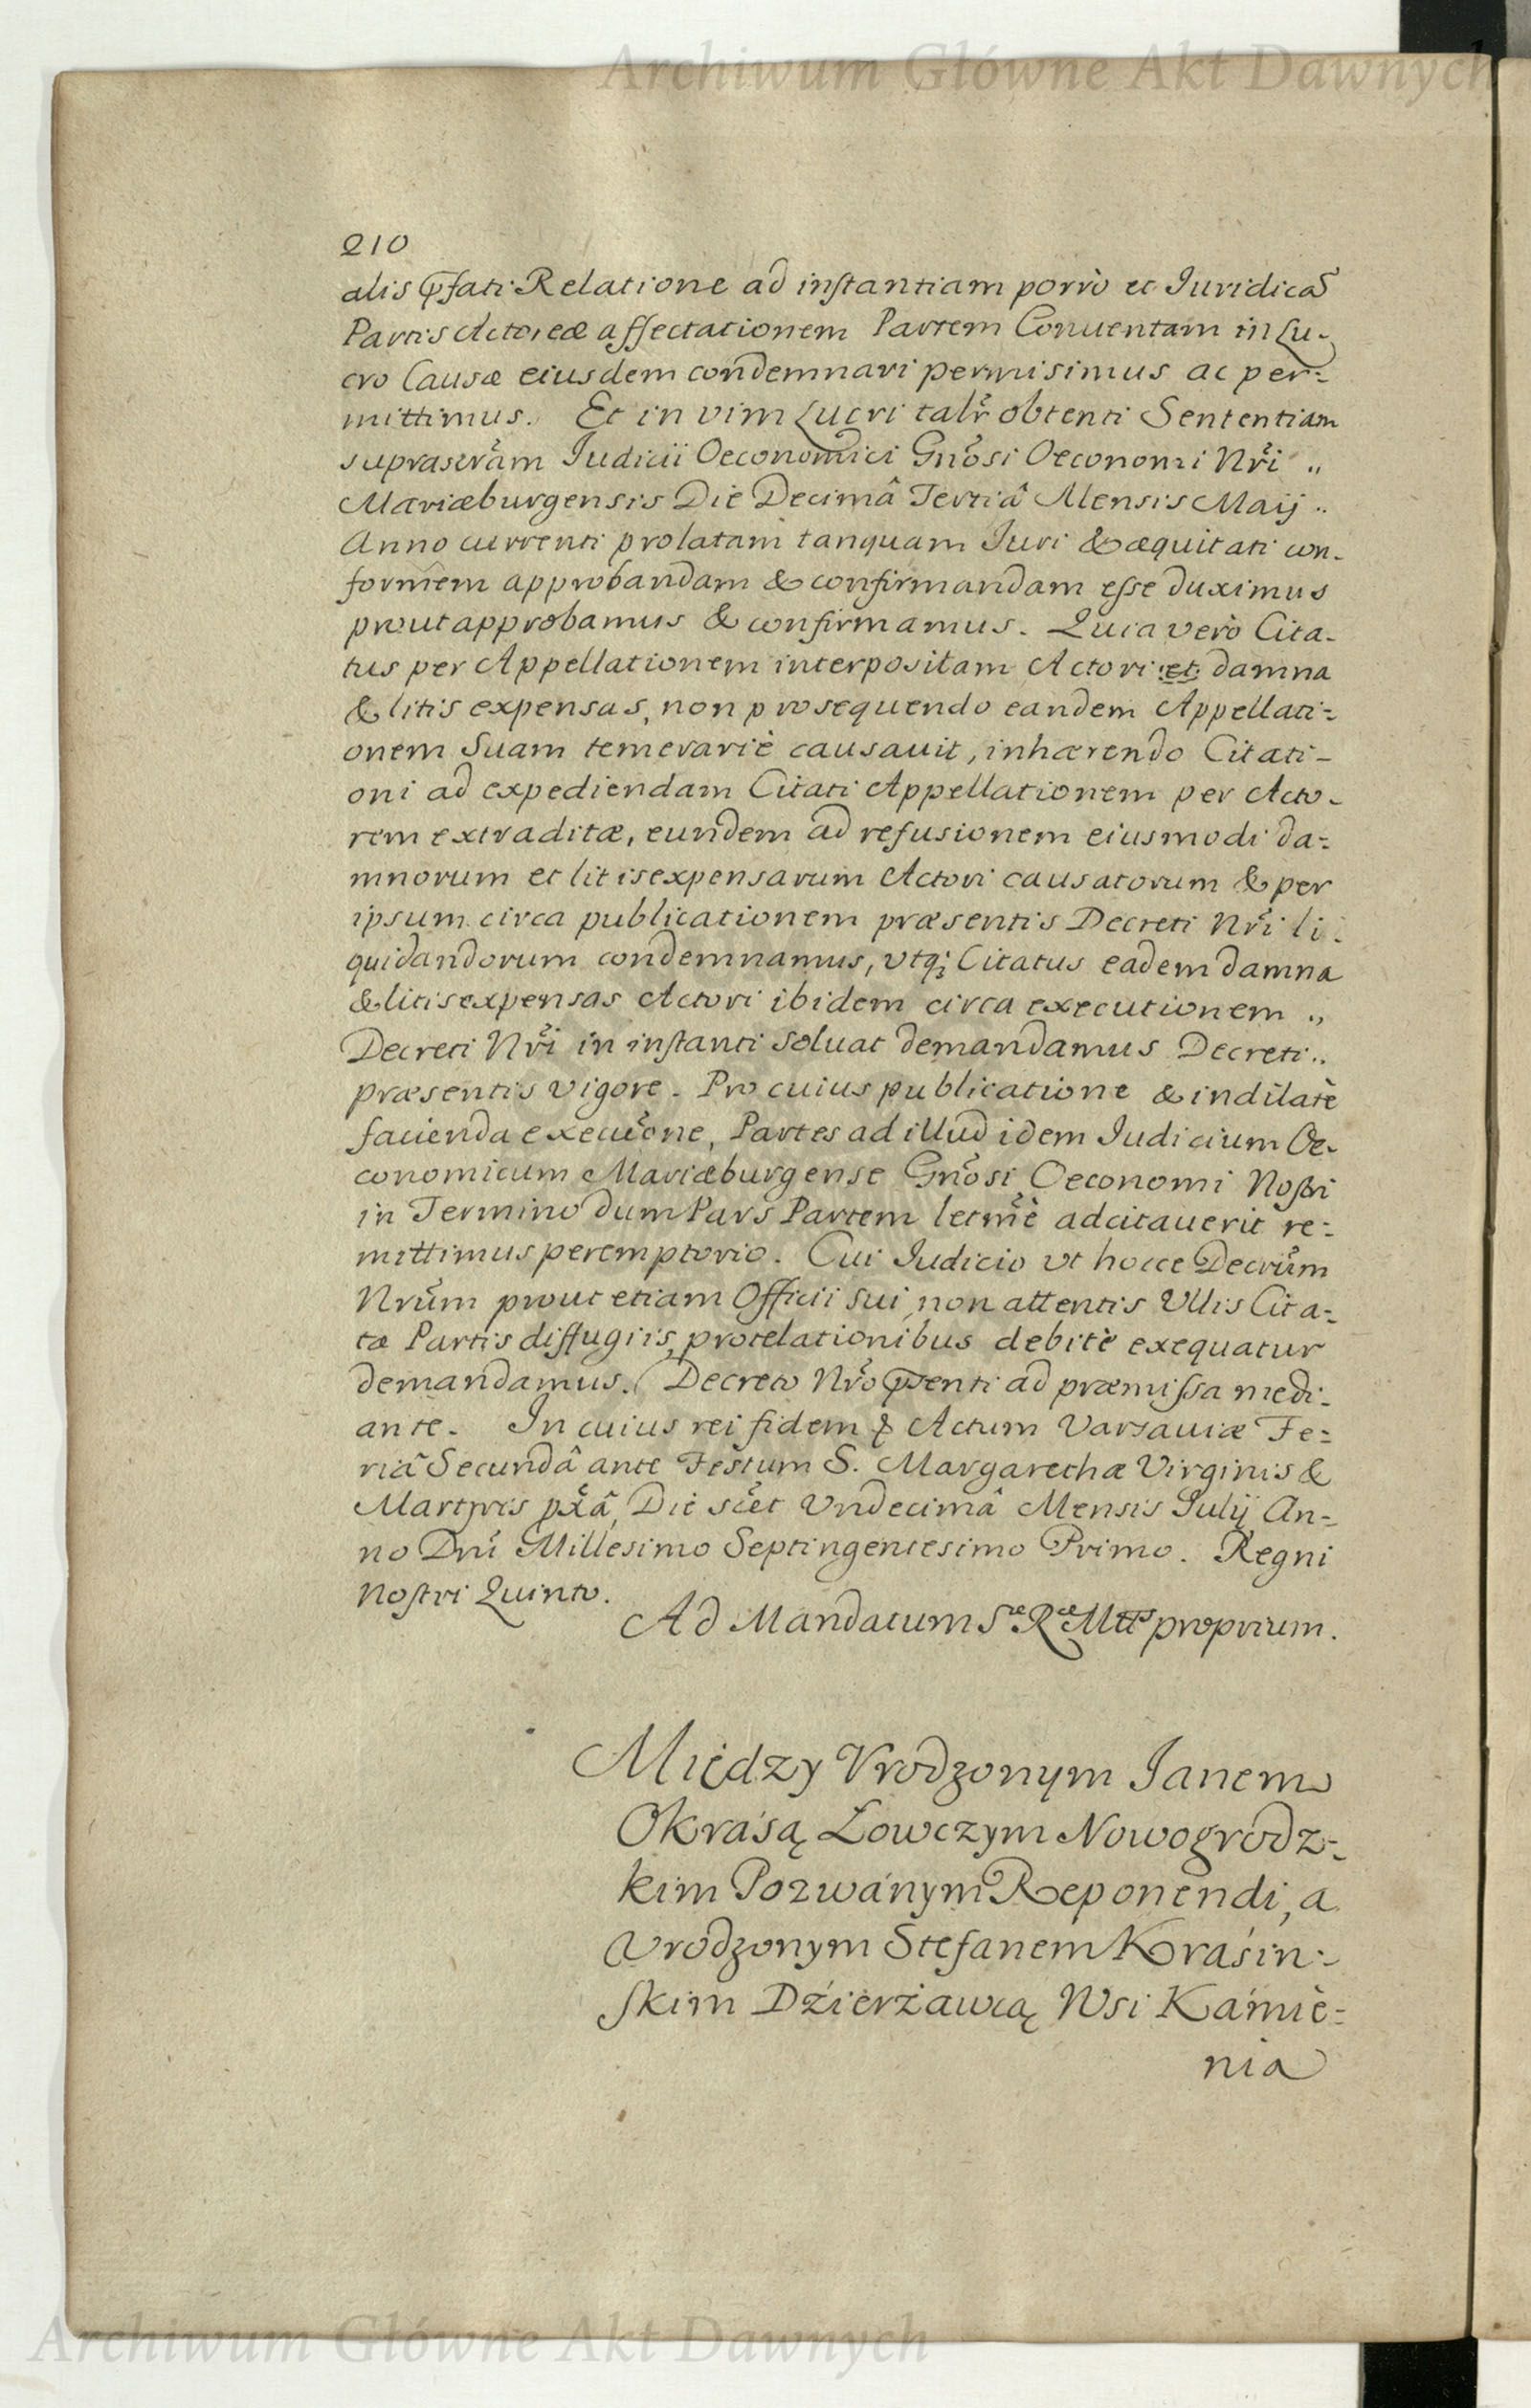 Archiwum Główne Akt Dawnych
210
alis p̄fati Relatione ad instantiam porrò et Iuridicā
Partis Actoreæ affectationem Partem Conuentam in Lu-
cro Causæ eiusdem condemnari permisimus ac per=
mittimus. Et in vim Lucri talr̃ obtenti Sententiam
suprascr̃am Iudicii Oeconomici Gnõsi Oeconomi Nr̃i „
Mariæburgensis Die Decimâ Tertiâ Mensis Maij „
Anno currenti prolatam tanquam Iuri & æquitati con-
formem approbandam & confirmandam esse duximus
prout approbamus & confirmamus. Quia verò Cita-
tus per Appellationem interpositam Actori et damna
& litis expensas, non prosequendo eandem Appellati=
onem Suam temerariè causauit, inhærendo Citati-
oni ad expediendam Citati Appellationem per Acto-
rem extraditæ, eundem ad refusionem eiusmodi da=
mnorum et litis expensarum Actori causatorum & per
ipsum circa publicationem præsentis Decreti Nr̃i li-
quidandorum condemnamus, vtq; Citatus eadem damna
& litis expensas Actori ibidem circa executionem „
Decreti Nr̃i in instanti soluat demandamus Decreti „
præsentis vigore. Pro cuius publicatione & indilatè
facienda execuõne, Partes ad illud idem Iudicium Oe-
conomicum Mariæburgense Gnõsi Oeconomi Nostri
in Termino dum Pars Partem letm̃è adcitauerit re=
mittimus peremptorio. Cui Iudicio vt hocce Decrũm
Nrũm prout etiam Officii sui, non attentis Vllis Cita=
tæ Partis diffugiis, protelationibus debitè exequatur
demandamus. Decreto Nr̃o p̄senti ad præmissa medi-
ante. In cuius rei fidem & Actum Varsauiæ Fe=
riâ Secundâ ante Festum S. Margarethæ Virginis &
Martyris px̃â, Die scĩet Vndecimâ Mensis Iulij An=
no Dnĩ Millesimo Septingentesimo Primo. Regni
Nostri Quinto.
Ad Mandatum Sæ Ræ Mttis proprium.
Między Vrodzonym Ianem
Okrásą Łowczym Nowogrodz=
kim Pozwánym Reponendi, a
Vrodzonym Stefanem Kraśin=
skim Dźierżawcą Wsi Kámie=
nia
Archiwum Główne Akt Dawnych